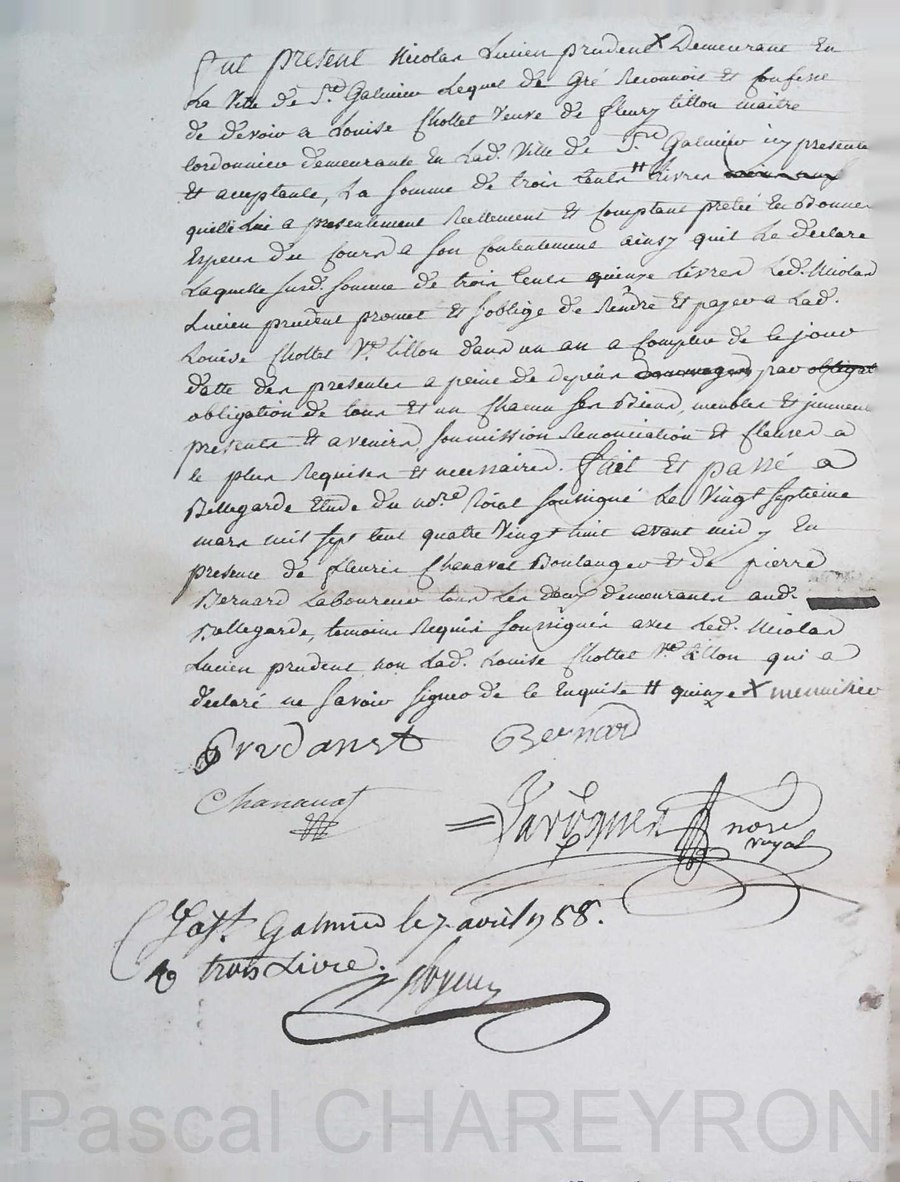 fut present Nicolas Lucien prudent X Demeurant En
La Ville de St. Galmier Lequel de Gré Reconnoit Et Confesse
de devoir a Louise Chollet Veuve de fleury tillon maitre
Cordonnier demeurante En Lad. Ville de St. Galmier icy presente
Et acceptante, La somme de trois Cents # Livres
quelle Lui a presentement Reellement Et Comptant preté En Bonnes
Especes du Cours a son Contentement ainsy quil Le declare
Laquelle susd. somme de trois Cents quinze Livres Led. Nicolas
Lucien prudent promet Et soblige de Rendre Et payer a Lad.
Louise Chollet Ve. tillon dans un an a Compter de Ce jour
datte des presentes a peine de depens dommages par obligat
obligation de tous Et un Chacun ses Biens, meubles Et immeu
presents Et avenirs, soumission Renonciation Et Clauses a
Ce plus Requises Et necessaires. fait Et passé a
Bellegarde Etude du nore. Roial soussigné Le Vingt septieme
mars mil sept Cent quatre Vingt huit avant midy En
presence de fleuris Chanavat Boulanger Et de pierre
Bernard Laboureur tous Les deux demeurants aud.
Bellegarde, temoins Requis soussignés avec Led. Nicolas
Lucien prudent non Lad. Louise Chollet Ve. tillon qui a
declaré ne savoir signer de Ce Enquise # quinze X menuisier
Prudanst Bernard
Chanavat
nore
royal
Galmier le 7. avril 1788.
trois Livre.
Pascal CHAREYRON